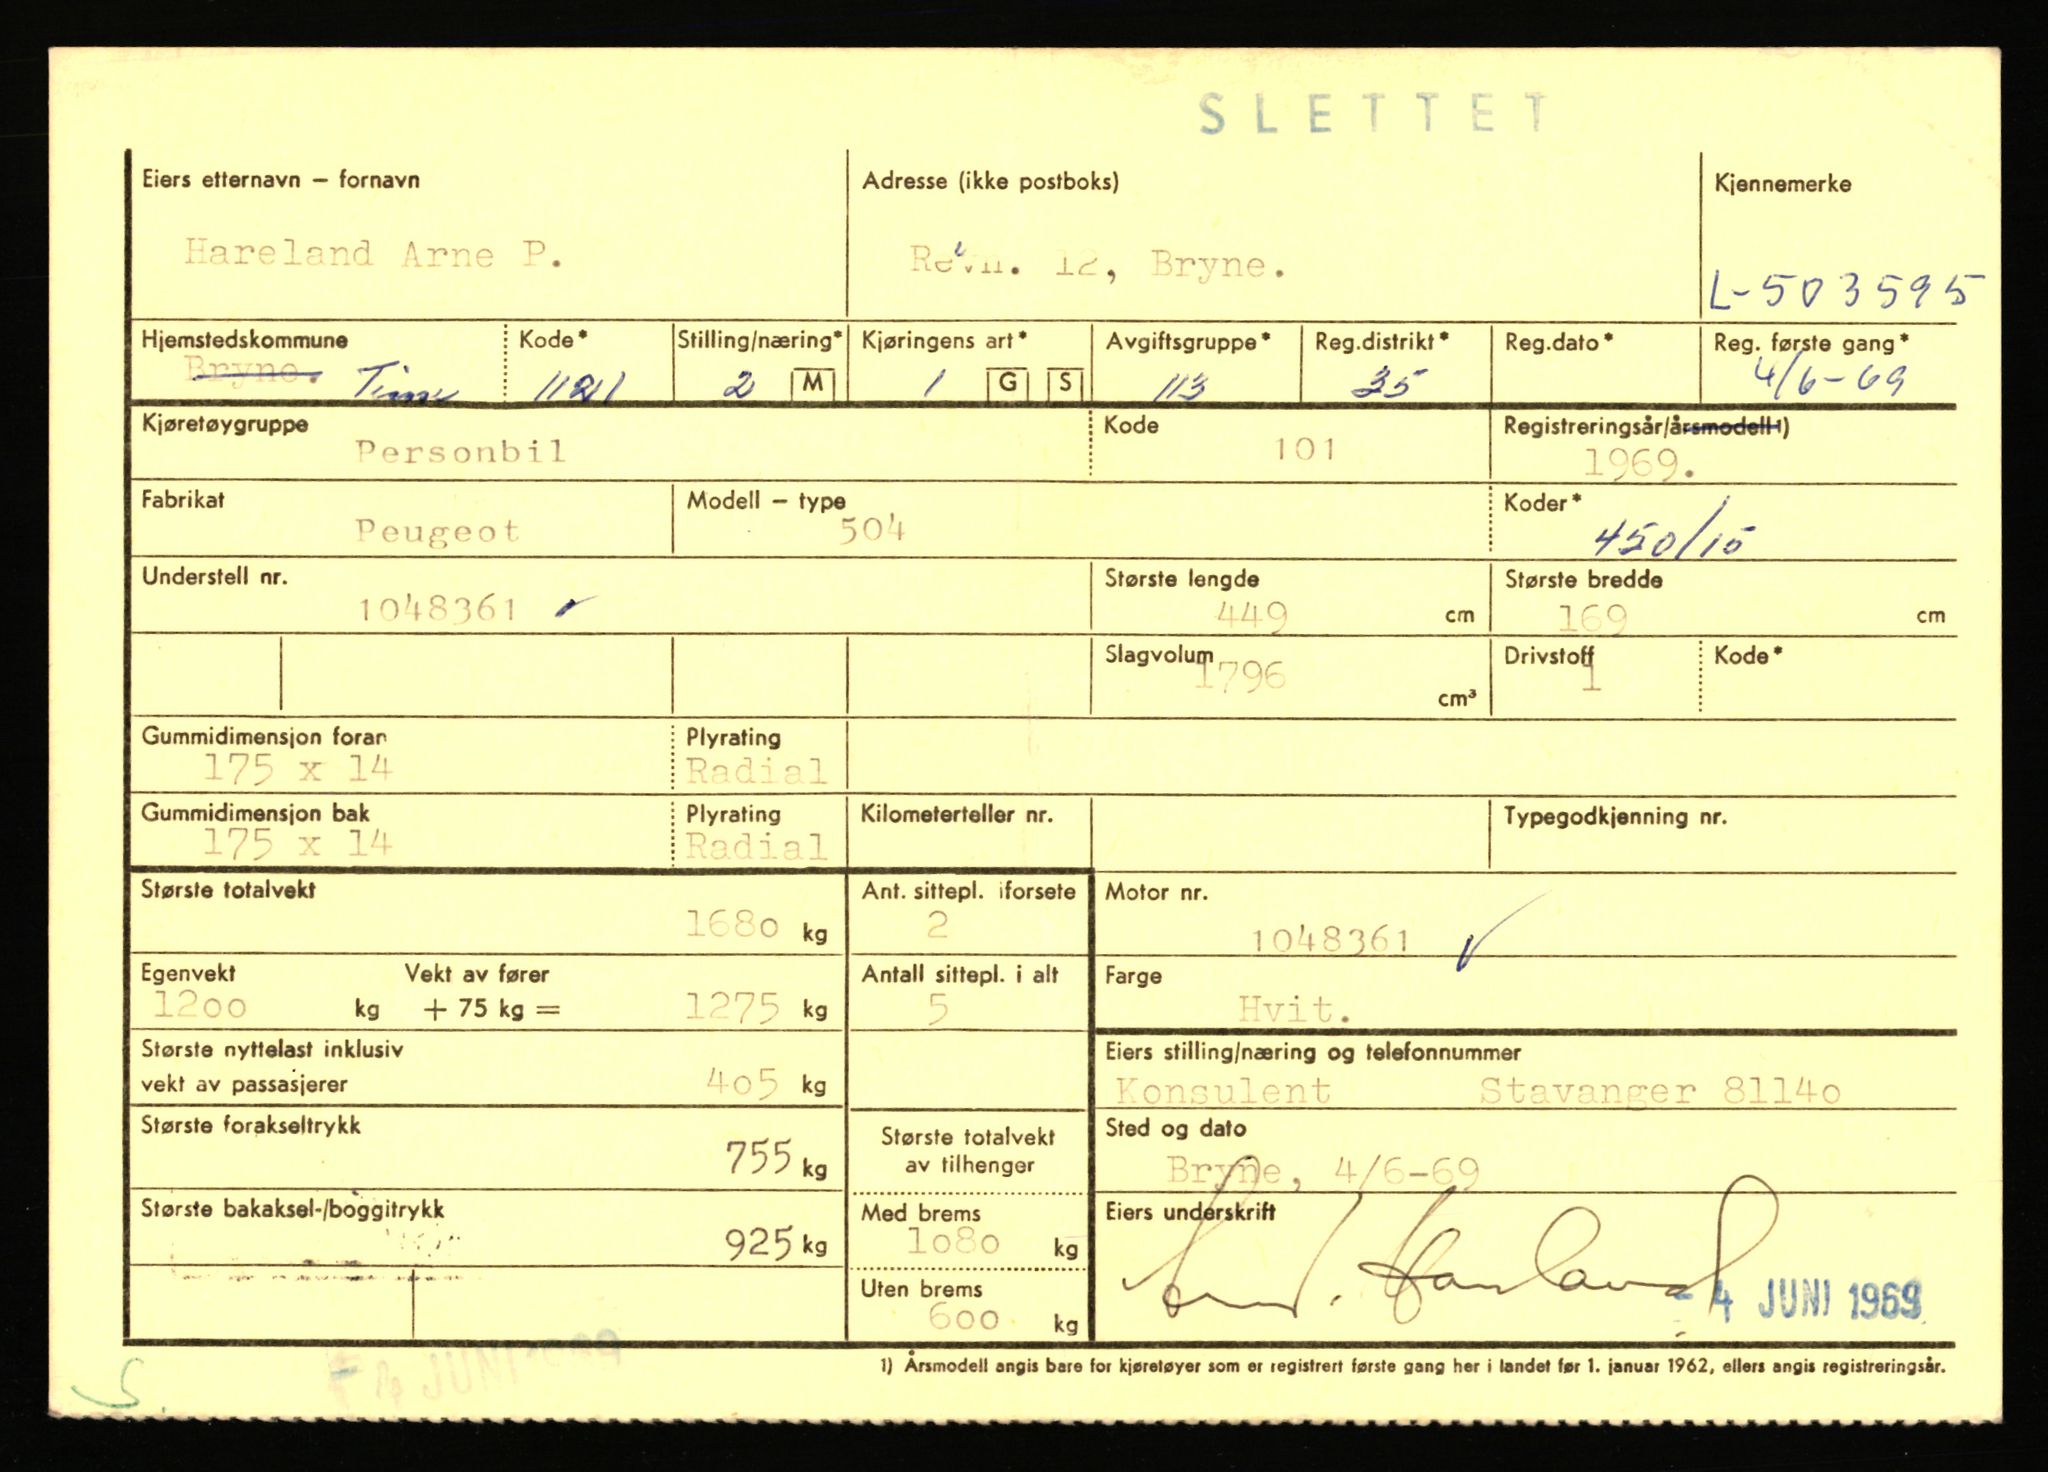 SLETTET
Eiers etternavn – fornavn
Hareland Arne P.
Adresse (ikke postboks)
Revn. 12, Bryne.
Kjennemerke
L-503595
Hjemstedskommune
Bryne. Time
Kode*
1121
Stilling/næring*
2 M
Kjøringens art*
1 G S
Avgiftsgruppe*
113
Reg.distrikt*
35
Reg.dato*
Reg. første gang*
4/6-69
Kjøretøygruppe
Personbil
Kode
101
Registreringsår/årsmodell 1)
1969.
Fabrikat
Peugeot
Modell – type
504
Koder*
450/15
Understell nr.
1048361
Største lengde
449 cm
Største bredde
169 cm
Slagvolum
1796 cm³
Drivstoff
1
Kode*
Gummidimensjon foran
175 x 14
Plyrating
Radial
Gummidimensjon bak
175 x 14
Plyrating
Radial
Kilometerteller nr.
Typegodkjenning nr.
Største totalvekt
1680 kg
Ant. sittepl. i forsete
2
Motor nr.
1048361
Egenvekt
1200 kg
Vekt av fører
+ 75 kg = 1275 kg
Antall sittepl. i alt
5
Farge
Hvit.
Største nyttelast inklusiv
vekt av passasjerer
405 kg
Eiers stilling/næring og telefonnummer
Konsulent Stavanger 81140
Største forakseltrykk
755 kg
Største totalvekt
av tilhenger
Sted og dato
Bryne, 4/6-69
Største bakaksel-/boggitrykk
925 kg
Med brems
1080 kg
Eiers underskrift
Uten brems
600 kg
- 4 JUNI 1969
1) Årsmodell angis bare for kjøretøyer som er registrert første gang her i landet før 1. januar 1962, ellers angis registreringsår.